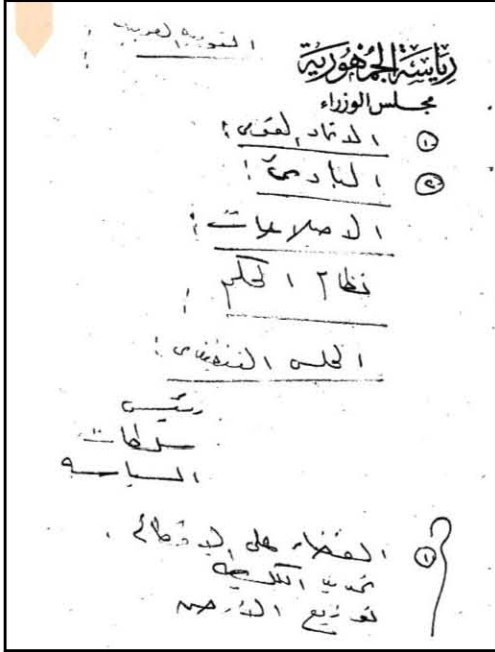 القومية العربية :
رياسة الجمهورية
مجلس الوزراء
① الاتحاد القومى :
② المبادئ :
الاصلاحات :
نظام الحكم :
المجلس التنفيذى :
رئيس
سلطات
السياسه
① القضاء على الاقطاع .
تحديد الملكيه
توزيع الارض